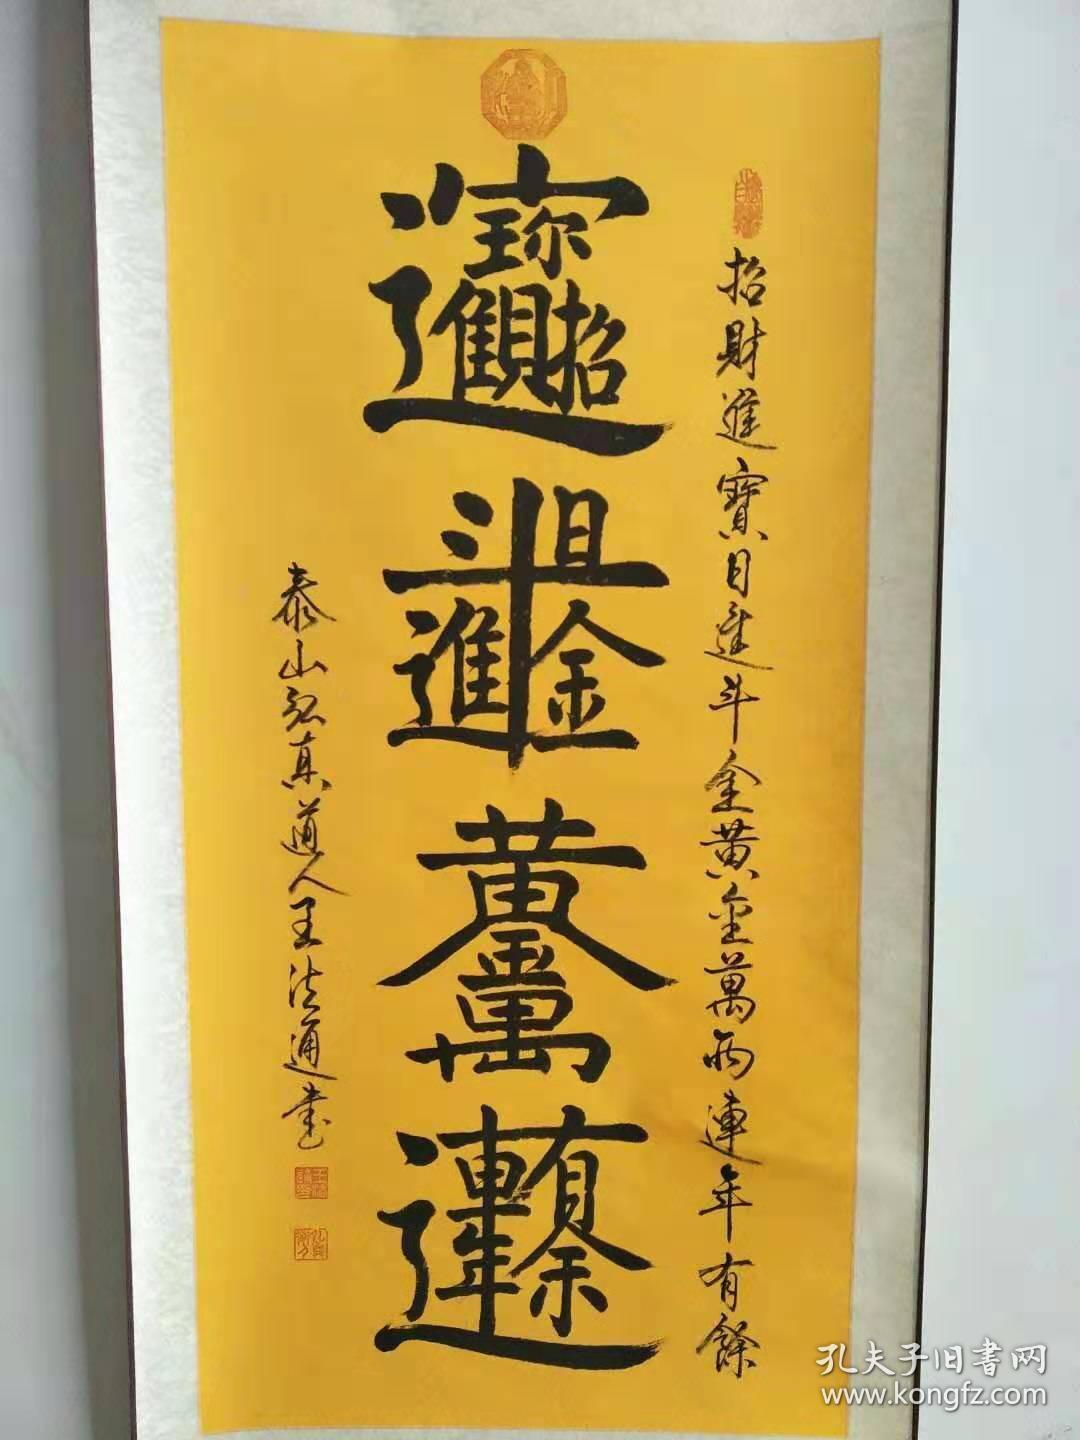 招財進寳日進斗金黄金萬两連年有餘
招財進寳
日進斗金
黄金萬
連年有余
泰山弘真道人王法通書
孔夫子旧書网
www.kongfz.com